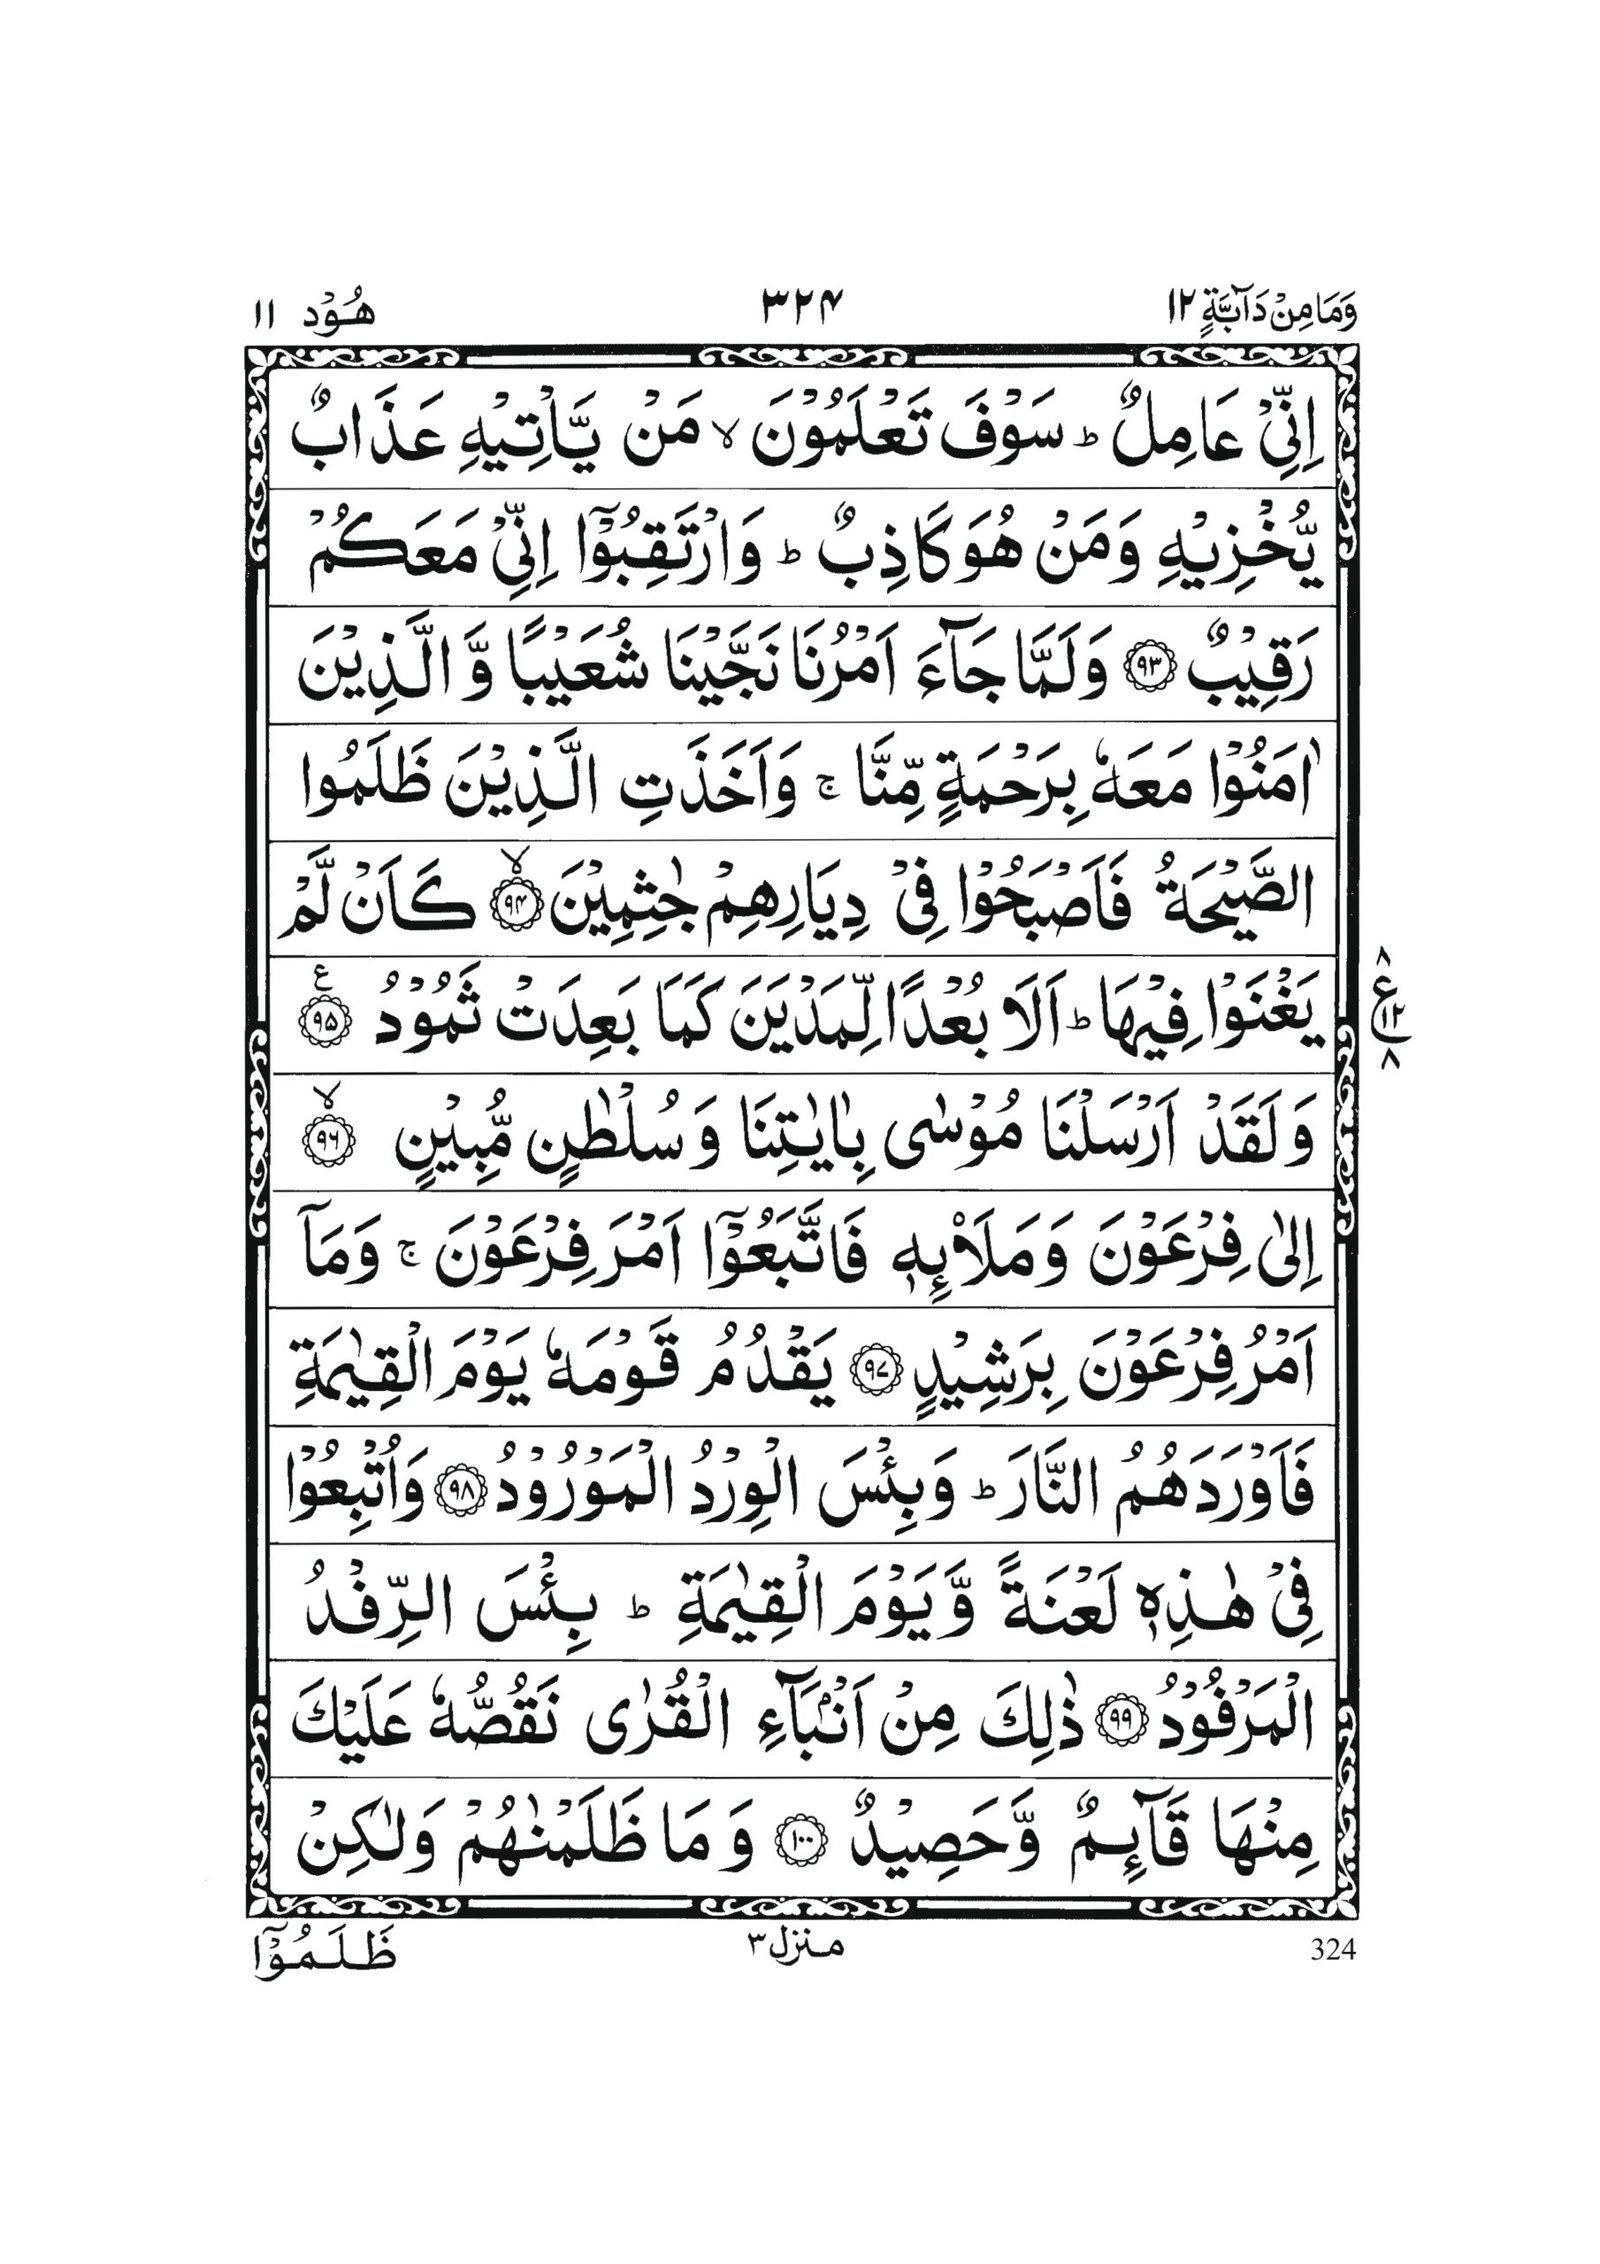 وَمَا مِنْ دَآبَّةٍ ١٢ ٣٢٤ هُوْد ١١
اِنِّىْ عَامِلٌ ؕ سَوْفَ تَعْلَمُوْنَ ۙ مَنْ يَّاْتِيْهِ عَذَابٌ
يُّخْزِيْهِ وَمَنْ هُوَ كَاذِبٌ ؕ وَارْتَقِبُوْۤا اِنِّىْ مَعَكُمْ
رَقِيْبٌ ﴿٩٣﴾ وَلَمَّا جَآءَ اَمْرُنَا نَجَّيْنَا شُعَيْبًا وَّالَّذِيْنَ
اٰمَنُوْا مَعَهٗ بِرَحْمَةٍ مِّنَّا ۚ وَاَخَذَتِ الَّذِيْنَ ظَلَمُوا
الصَّيْحَةُ فَاَصْبَحُوْا فِىْ دِيَارِهِمْ جٰثِمِيْنَ ﴿٩٤﴾ۙ كَاَنْ لَّمْ
يَغْنَوْا فِيْهَا ؕ اَلَا بُعْدًا لِّمَدْيَنَ كَمَا بَعِدَتْ ثَمُوْدُ ﴿٩٥﴾ ع
٨ ع ١٢ ٨
وَلَقَدْ اَرْسَلْنَا مُوْسٰى بِاٰيٰتِنَا وَسُلْطٰنٍ مُّبِيْنٍ ﴿٩٦﴾ۙ
اِلٰى فِرْعَوْنَ وَمَلَا۟ئِهٖ فَاتَّبَعُوْۤا اَمْرَ فِرْعَوْنَ ۚ وَمَاۤ
اَمْرُ فِرْعَوْنَ بِرَشِيْدٍ ﴿٩٧﴾ يَقْدُمُ قَوْمَهٗ يَوْمَ الْقِيٰمَةِ
فَاَوْرَدَهُمُ النَّارَ ؕ وَبِئْسَ الْوِرْدُ الْمَوْرُوْدُ ﴿٩٨﴾ وَاُتْبِعُوْا
فِىْ هٰذِهٖ لَعْنَةً وَّيَوْمَ الْقِيٰمَةِ ؕ بِئْسَ الرِّفْدُ
الْمَرْفُوْدُ ﴿٩٩﴾ ذٰلِكَ مِنْ اَنْۢبَآءِ الْقُرٰى نَقُصُّهٗ عَلَيْكَ
مِنْهَا قَآئِمٌ وَّحَصِيْدٌ ﴿١٠٠﴾ وَمَا ظَلَمْنٰهُمْ وَلٰكِنْ
324 منزل ٣ ظَلَمُوْۤا